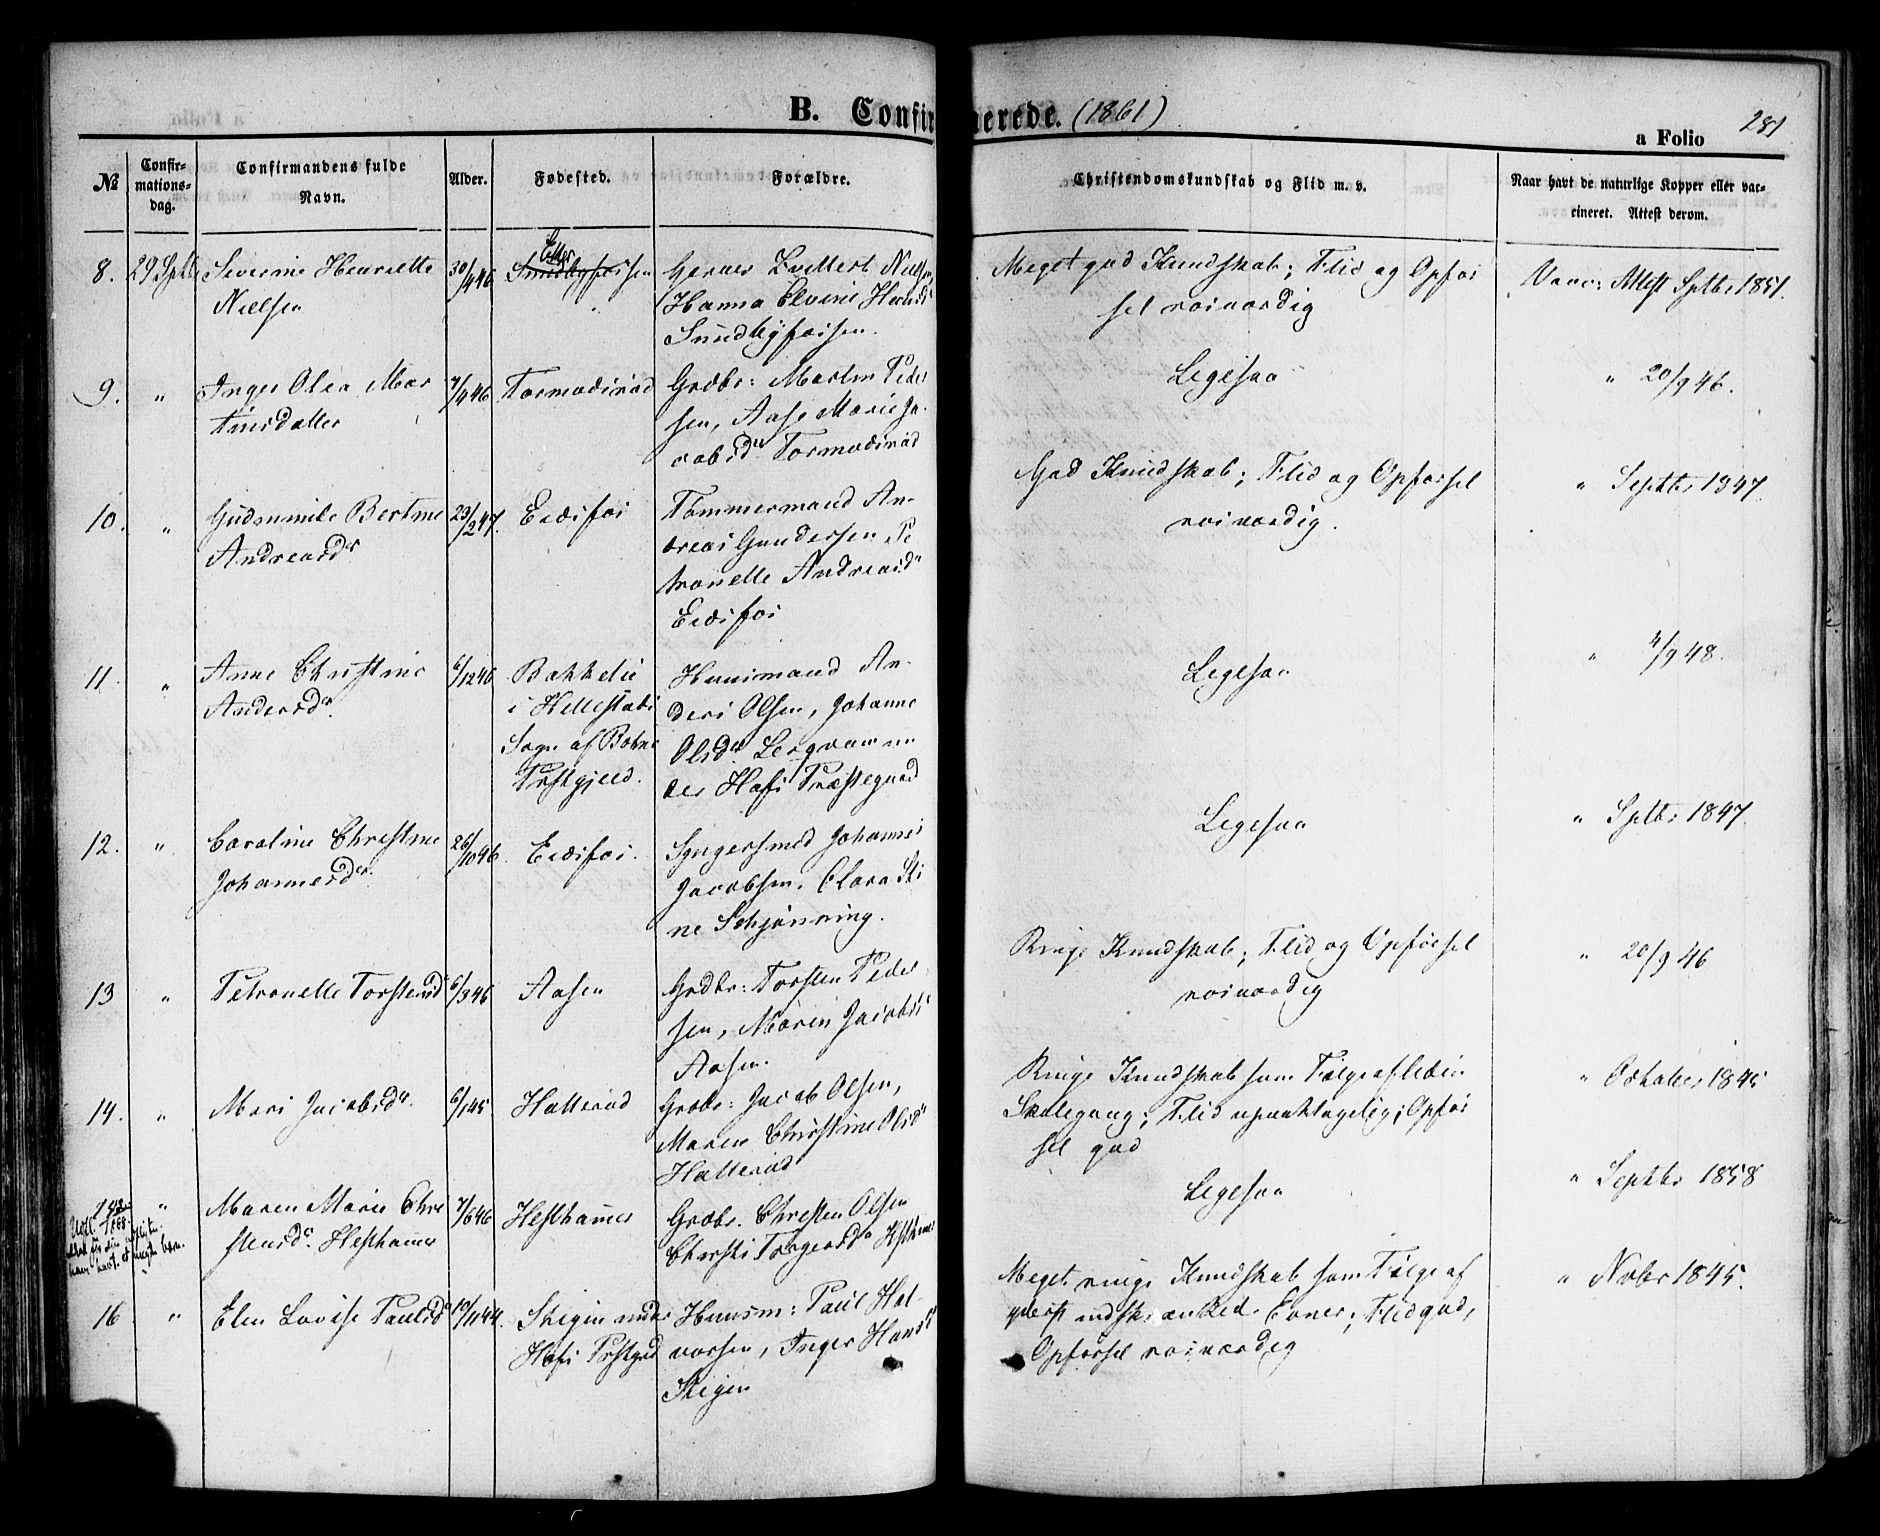 B. Confirmerede. (1861)
281
a Folio
№
Confir-
mations-
dag.
Confirmandens fulde
Navn.
Alder.
Fødested.
Forældre.
Christendomskundskab og Flid m. v.
Naar havt de naturlige Kopper eller vac-
cineret. Attest derom.
8. 29 Septb
Severine Henriette
Nielsen
30/4 46
Sundbyfossen
Nielsen
Sundbyfossen.
Meget god Kundskab; Flid og Opfør
sel roesværdig
Vacc: Attest Septbr 1851.
9. "
Inger Olea Mar
tinsdatter
7/4 46
Tormodsrød
Grdbr: Martin Peder
sen, Aase Marie Ja-
cobsdr Tormodsrød
Ligesaa
" 20/9 46.
10. "
Gudenmile Bertine
Andreasdr
23/2 47.
Eidsfos
Tømmermand An-
dreas Gundersen, Pe
tronelle Andreasdr
Eidsfos
God Kundskab; Flid og Opførsel
roesværdig.
" Septbr 1847.
11. "
Anne Christine
Andersdr.
6/12 46
Bakkelie
i Hillestads
Sogn af Botne
Præstgjeld.
Huusmand An-
ders Olsen, Johanne
Olsdr. un
der Hofs Præstegaard
Ligesaa
" 4/9 48.
12. "
Caroline Christine
Johannesdr.
26/10 46.
Eidsfos.
Johannes
Jacobsen, Clara Sti
ne Schjønning.
Ligesaa
" Septbr 1847.
13 "
Petronelle Torstensd
6/3 46
Aasen
Grdbr: Torsten Peder
sen, Maren Jacobsd
Aasen.
Ringe Kundskab; Flid og Opførsel
roesværdig
" 20/9 46
14. "
Mari Jacobsdr.
6/1 45
Hallerød
Grdbr: Jacob Olsen,
Maren Christine Olsdr
Hallerød
Ringe Kundskab som Følge af liden
Skolegang; Flid upaaklagelig; Opfør
sel god
" October 1845
"
Maren Marie Chri
stensdr. Hesthamer
7/6 46
Hesthamer
Grdbr. Christen Olsen
Torgersdr Hesthamer
Ligesaa
" Septbr 1858
16 "
Elen Lovise Paulsd
10/11 44.
Skigen under
Hofs Præstgrd
Huusm: Paul Hal-
vorsen, Inger Hansd
Skigen
Meget ringe Kundskab som Følge af
yderst indskrænkede Evner; Flid god,
Opførsel roesværdig
" Novbr 1845.